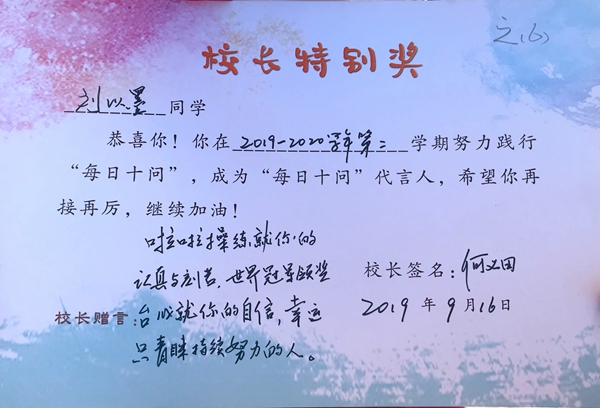 校长特别奖
刘以墨同学
恭喜你！你在2019-2020学年第二学期努力践行
“每日十问”，成为“每日十问”代言人，希望你再
接再厉，继续加油！
啦啦操练就你的
认真与刻苦，世界冠军颁奖
校长赠言：台成就你的自信，幸运
只青睐持续努力的人。
校长签名：何
2019年9月16日